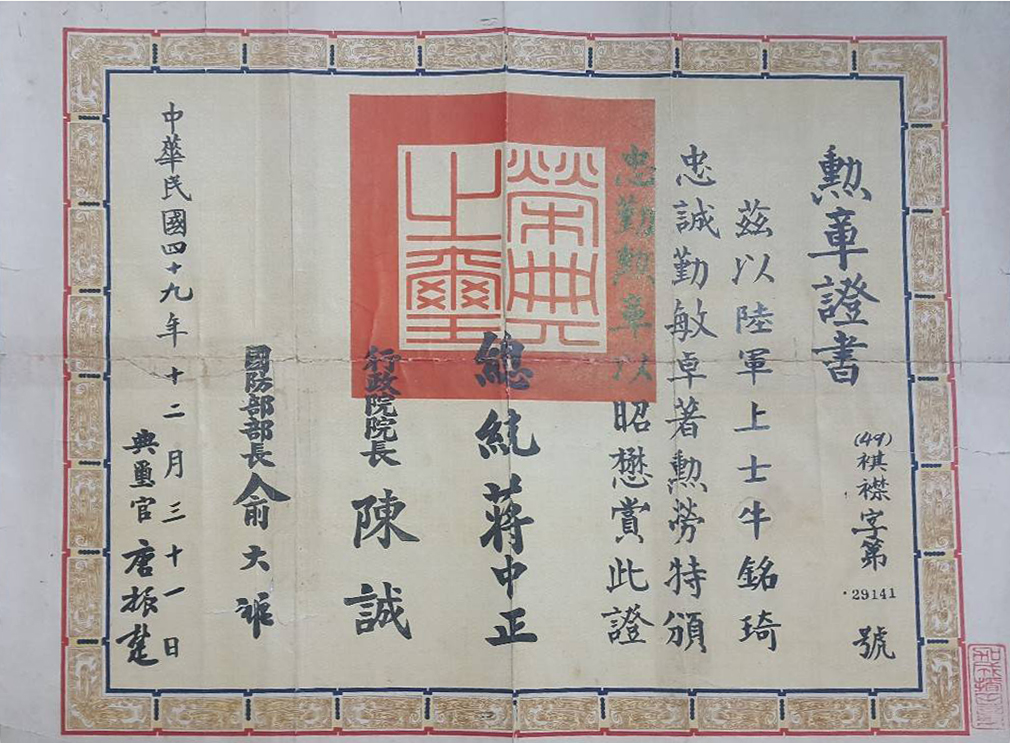 勲章證書
(49)祺襟字第
29141
號
茲以陸軍上士牛銘琦
忠誠勤敏卓著勲勞特頒
忠勤勲章以昭懋賞此證
榮典之璽
總統蔣中正
行政院院長陳誠
國防部部長俞大維
中華民國四十九年十二月三十一日
典璽官唐振楚